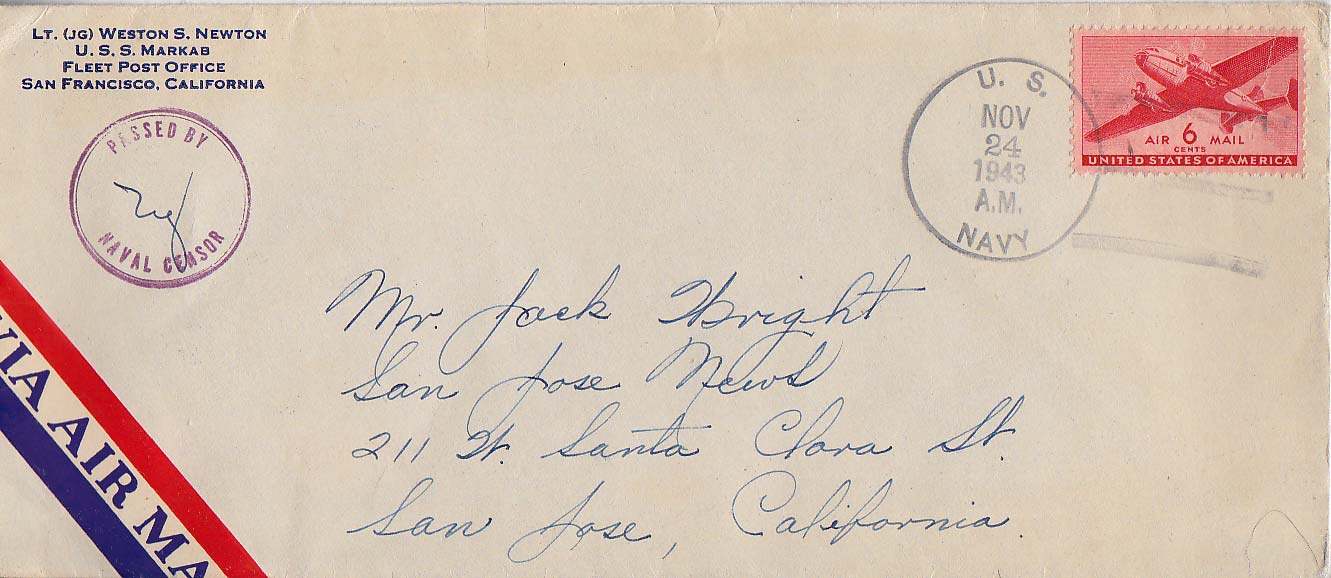 LT. (JG) WESTON S. NEWTON
U. S. S. MARKAB
FLEET POST OFFICE
SAN FRANCISCO, CALIFORNIA
PASSED BY
NAVAL CENSOR
U. S.
NOV
24
1943
A.M.
NAVY
AIR 6 MAIL
CENTS
UNITED STATES OF AMERICA
Mr. Jack Wright
San Jose News
211 W. Santa Clara St.
San Jose, California.
VIA AIR MA